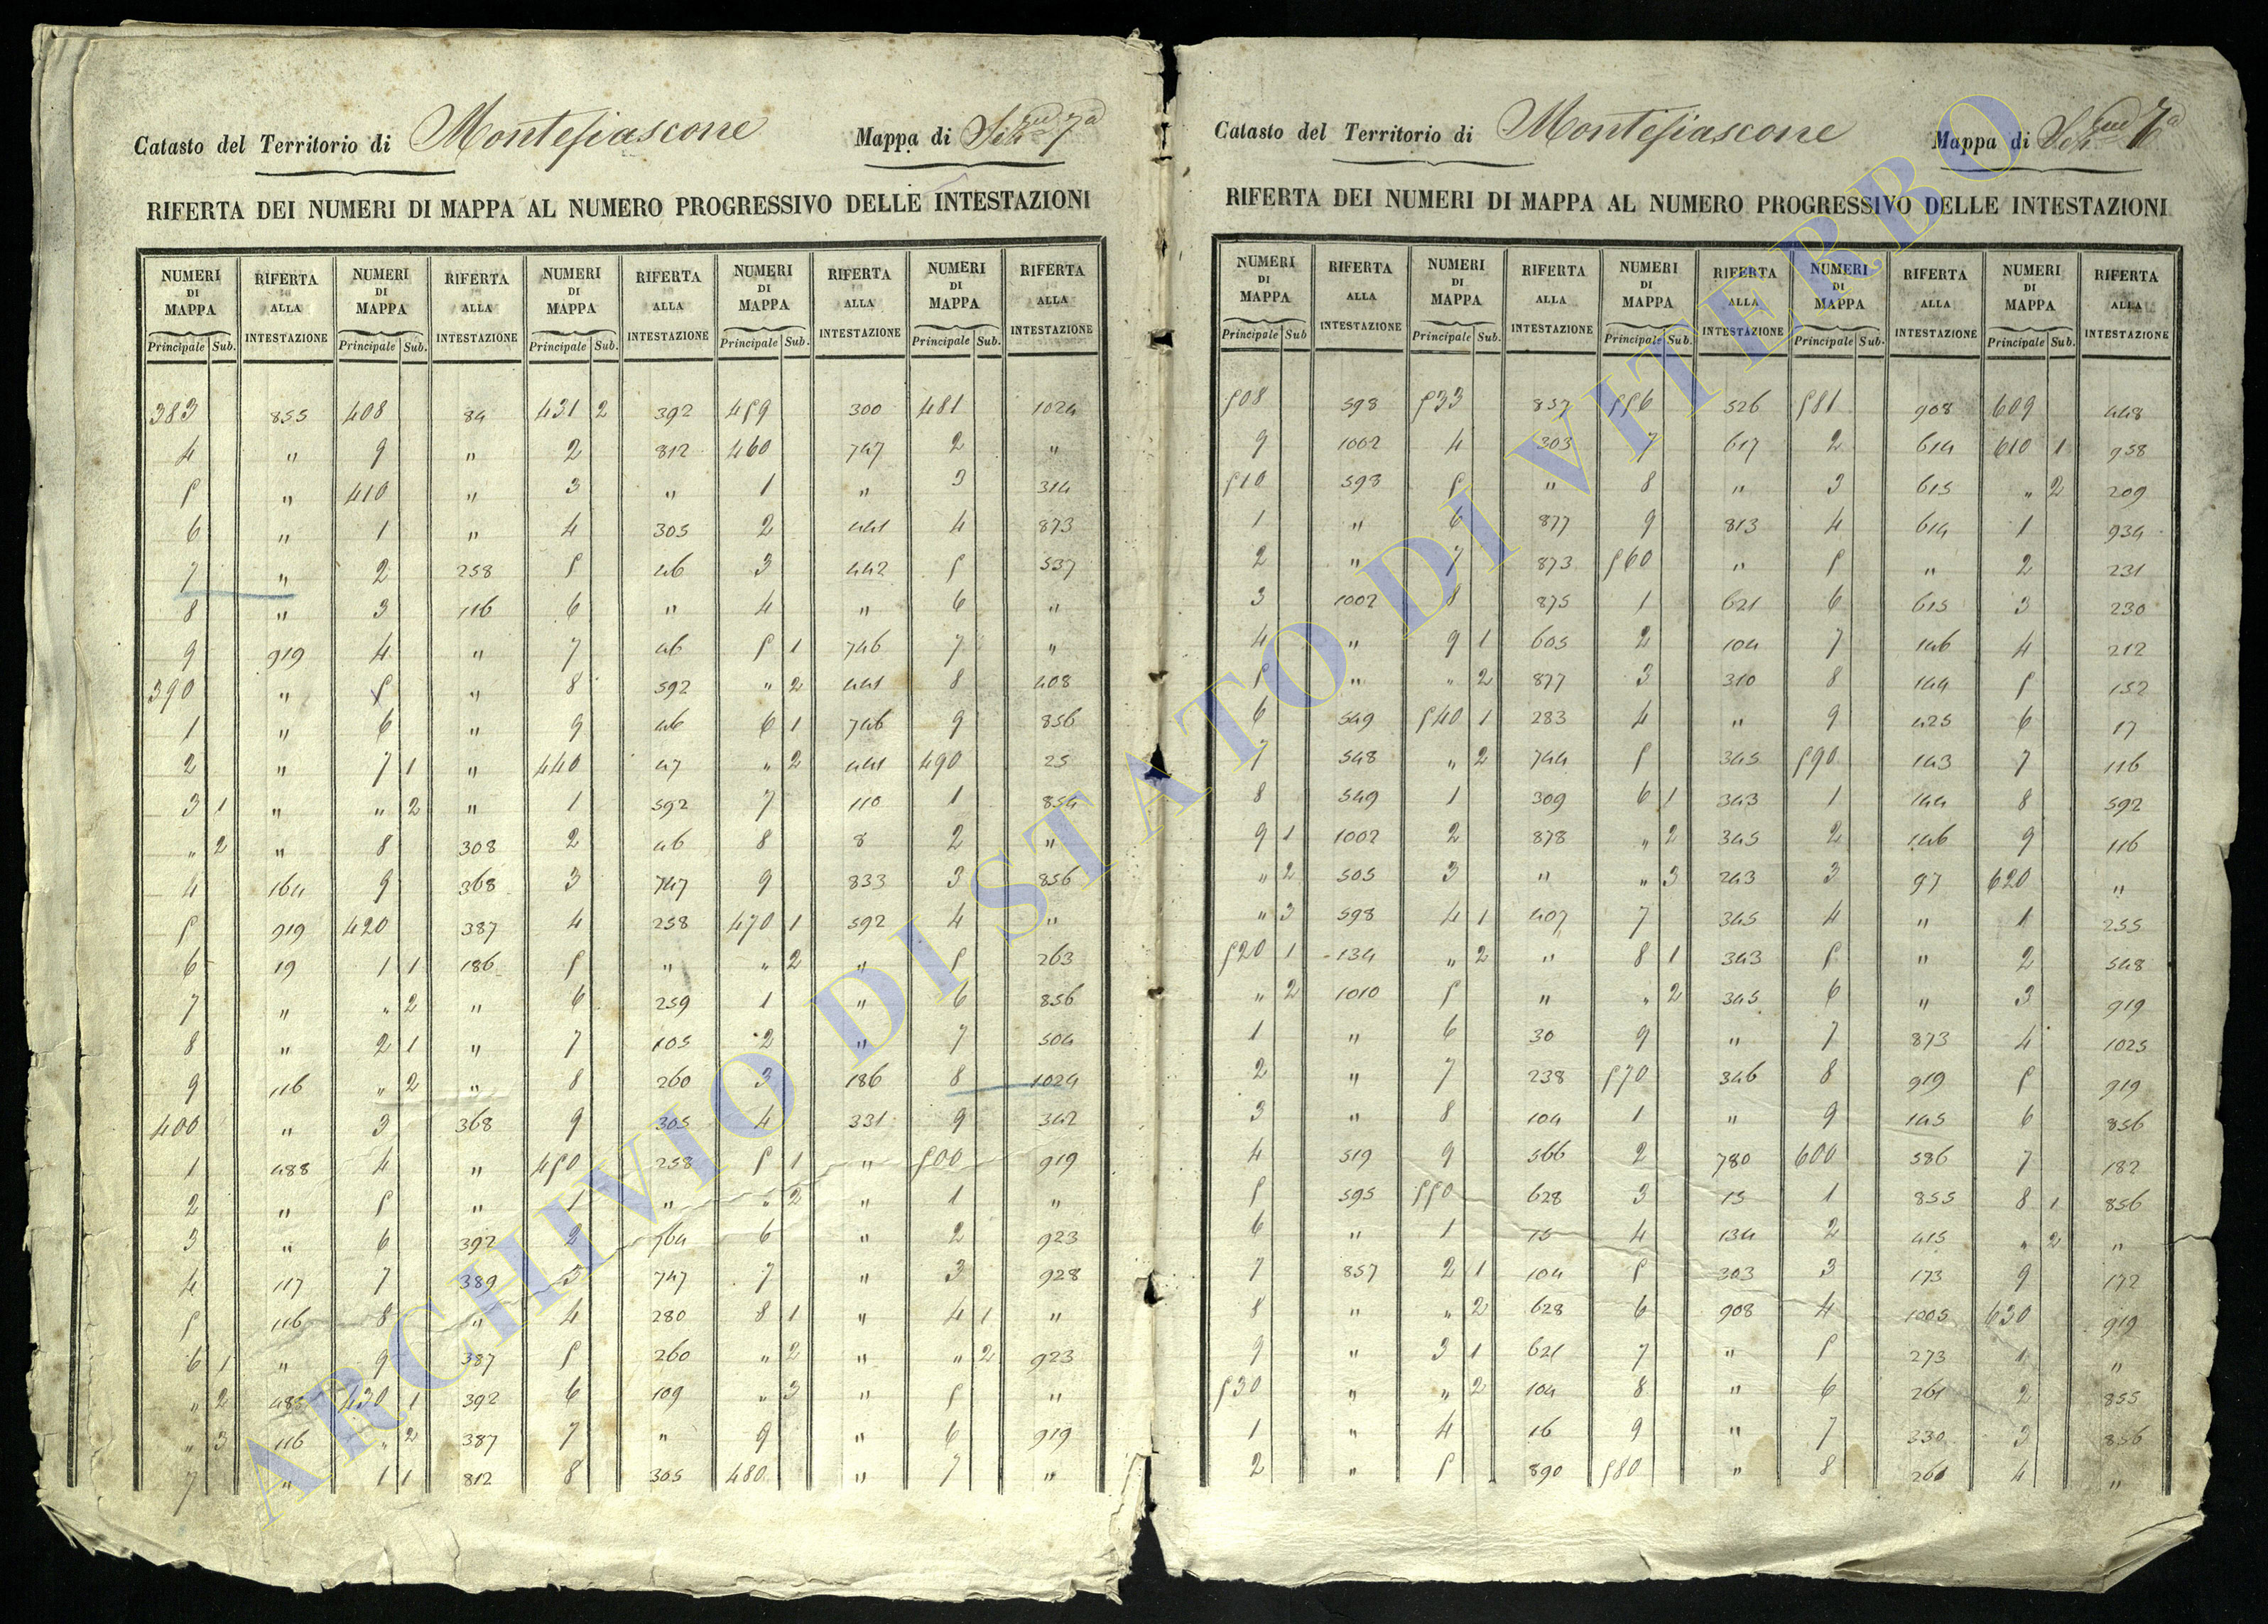 Catasto del Territorio di Montefiascone Mappa di Sez.ne 7a
RIFERTA DEI NUMERI DI MAPPA AL NUMERO PROGRESSIVO DELLE INTESTAZIONI
NUMERI DI MAPPA RIFERTA ALLA INTESTAZIONE NUMERI DI MAPPA RIFERTA ALLA INTESTAZIONE NUMERI DI MAPPA RIFERTA ALLA INTESTAZIONE NUMERI DI MAPPA RIFERTA ALLA INTESTAZIONE NUMERI DI MAPPA RIFERTA ALLA INTESTAZIONE
Principale Sub. Principale Sub. Principale Sub. Principale Sub. Principale Sub.
383 855 408 84 431 2 392 459 300 481 1024
4 " 9 " 2 812 460 747 2 "
5 " 410 " 3 " 1 " 3 314
6 " 1 " 4 305 2 441 4 873
7 " 2 258 5 46 3 442 5 537
8 " 3 116 6 " 4 " 6 "
9 919 4 " 7 46 5 1 746 7 "
390 " 5 " 8 592 " 2 441 8 408
1 " 6 " 9 46 6 1 746 9 856
2 " 7 1 " 440 47 " 2 441 490 25
3 1 " " 2 " 1 592 7 110 1 854
" 2 " 8 308 2 46 8 8 2 "
4 164 9 368 3 747 9 833 3 856
5 919 420 387 4 258 470 1 592 4 "
6 19 1 1 186 5 " " 2 " 5 263
7 " " 2 " 6 259 1 " 6 856
8 " 2 1 " 7 105 2 " 7 504
9 116 " 2 " 8 260 3 186 8 1024
400 " 3 368 9 305 4 331 9 342
1 488 4 " 450 258 5 1 " 500 919
2 " 5 " 1 " " 2 " 1 "
3 " 6 392 2 764 6 " 2 923
4 117 7 389 3 747 7 " 3 928
5 116 8 " 4 280 8 1 " 4 1 "
6 1 " 9 387 5 260 " 2 " " 2 923
" 2 485 430 1 392 6 109 " 3 " 5 "
" 3 116 " 2 387 7 " 9 " 6 919
7 " 1 1 812 8 305 480 " 7 "
Catasto del Territorio di Montefiascone Mappa di Sez.ne 7a
RIFERTA DEI NUMERI DI MAPPA AL NUMERO PROGRESSIVO DELLE INTESTAZIONI
NUMERI DI MAPPA RIFERTA ALLA INTESTAZIONE NUMERI DI MAPPA RIFERTA ALLA INTESTAZIONE NUMERI DI MAPPA RIFERTA ALLA INTESTAZIONE NUMERI DI MAPPA RIFERTA ALLA INTESTAZIONE NUMERI DI MAPPA RIFERTA ALLA INTESTAZIONE
Principale Sub Principale Sub. Principale Sub. Principale Sub. Principale Sub.
508 598 533 857 556 526 581 908 609 448
9 1002 4 303 7 617 2 614 610 1 958
510 598 5 " 8 " 3 615 " 2 209
1 " 6 877 9 813 4 614 1 934
2 " 7 873 560 " 5 " 2 231
3 1002 8 875 1 621 6 615 3 230
4 " 9 1 605 2 104 7 146 4 212
5 " " 2 877 3 310 8 144 5 152
6 549 540 1 283 4 " 9 425 6 17
7 548 " 2 744 5 345 590 143 7 116
8 549 1 309 6 1 343 1 144 8 592
9 1 1002 2 878 " 2 345 2 146 9 116
" 2 505 3 " " 3 243 3 97 620 "
" 3 598 4 1 407 7 345 4 " 1 255
520 1 134 " 2 " 8 1 343 5 " 2 548
" 2 1010 5 " " 2 345 6 " 3 919
1 " 6 30 9 " 7 873 4 1025
2 " 7 238 570 346 8 919 5 919
3 " 8 104 1 " 9 145 6 856
4 519 9 566 2 780 600 586 7 182
5 595 550 628 3 15 1 855 8 1 856
6 " 1 15 4 134 2 415 " 2 "
7 857 2 1 104 5 303 3 173 9 172
8 " " 2 628 6 908 4 1005 630 919
9 " 3 1 621 7 " 5 273 1 "
530 " " 2 104 8 " 6 261 2 855
1 " 4 16 9 " 7 330 3 856
2 " 5 890 580 " 8 261 4 "
ARCHIVIO DI STATO DI VITERBO